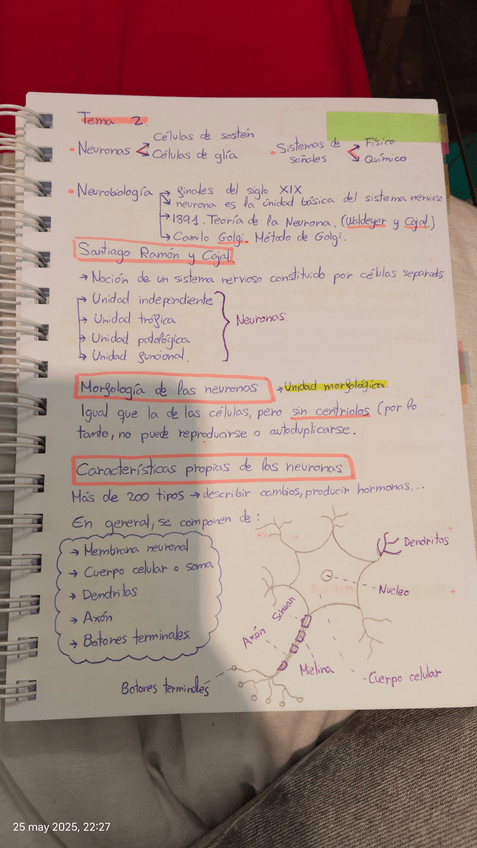 Tema 2
• Neuronas < Células de sostén
Células de glía
• Sistemas de señales < Físico
Químico
• Neurobiología → finales del siglo XIX
→ neurona es la unidad básica del sistema nervioso
→ 1891. Teoría de la Neurona. (Waldeyer y Cajal)
→ Camilo Golgi. Método de Golgi.
Santiago Ramón y Cajal
→ Noción de un sistema nervioso constituido por células separads
→ Unidad independiente
→ Unidad trófica
→ Unidad patológica
→ Unidad funcional.
} Neuronas
Morfología de las neuronas → Unidad morfológica
Igual que la de las células, pero sin centriolos (por lo
tanto, no puede reproducirse o autoduplicarse.
Características propias de las neuronas
Más de 200 tipos → describir cambios, producir hormonas...
En general, se componen de:
→ Membrana neuronal
→ Cuerpo celular o soma
→ Dendritas
→ Axón
→ Botones terminales
Dendritas
Nucleo
Schwan
Axón
Mielina
Cuerpo celular
Botones terminales
25 may 2025, 22:27